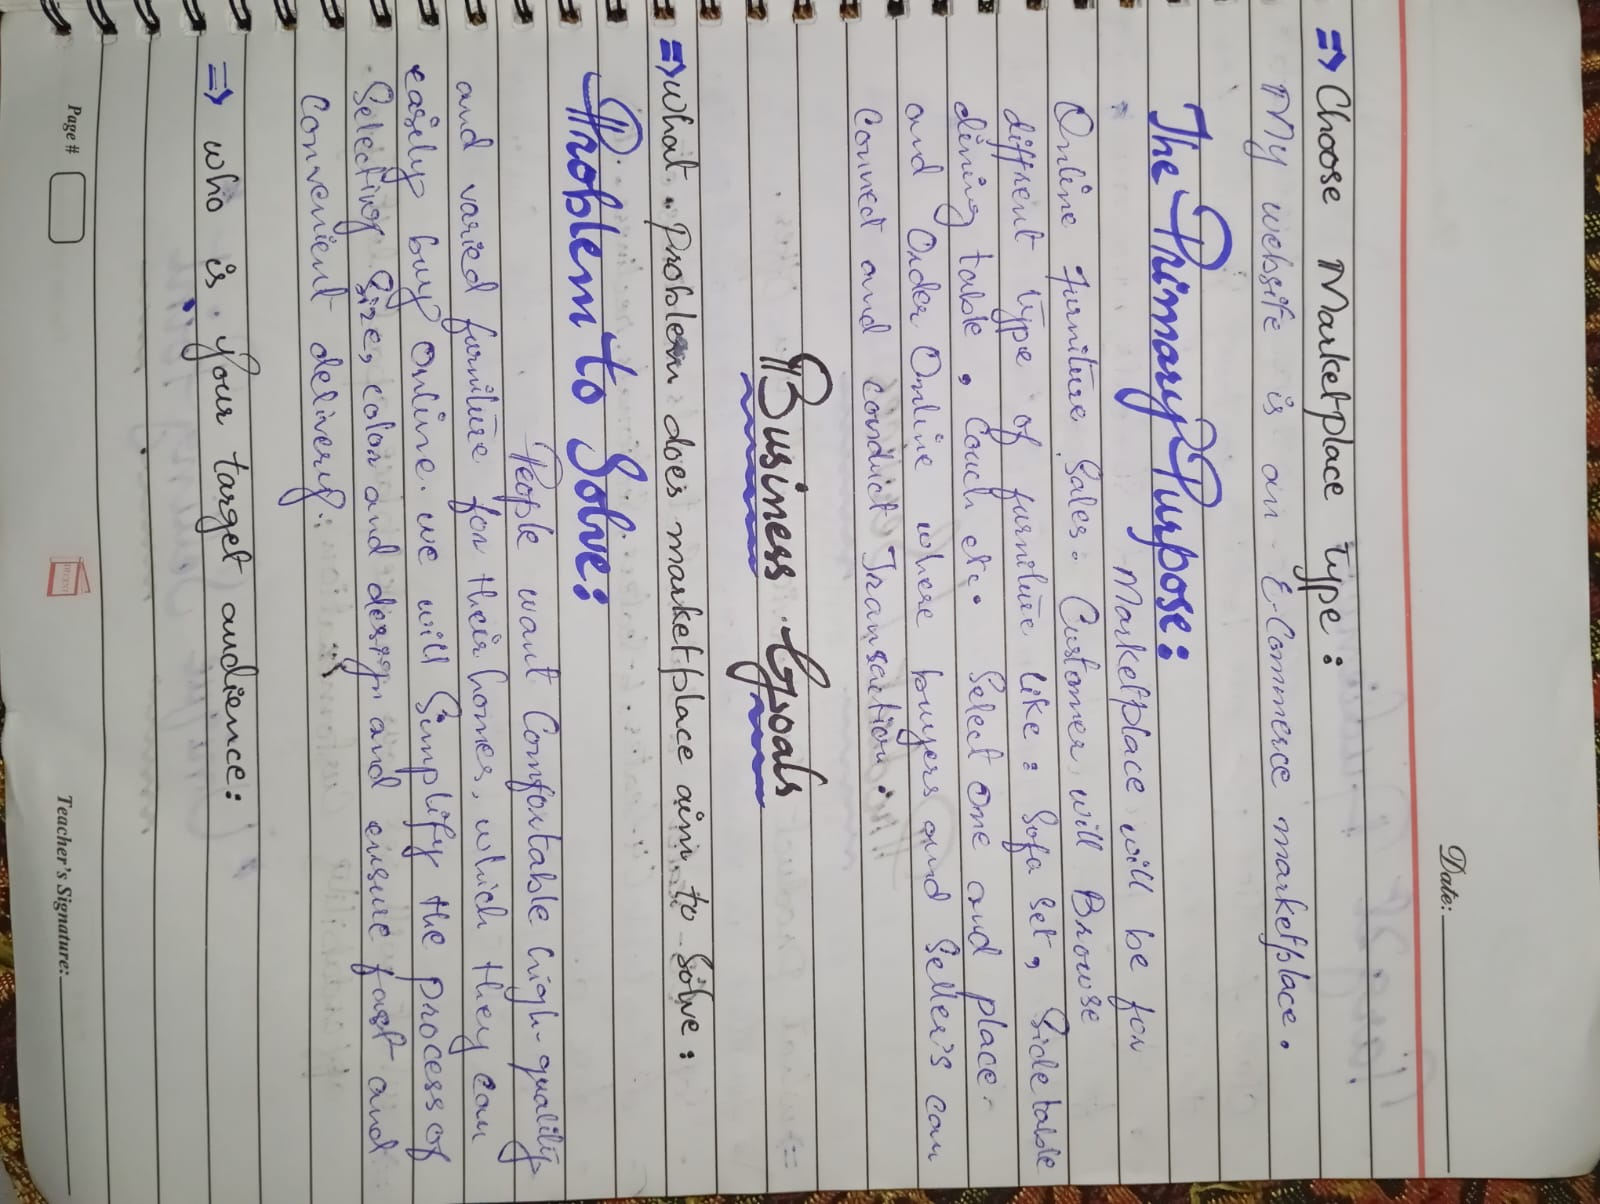 Date:
⇒ Choose Marketplace Type:
My website is an E-Commerce marketplace.
The Primary Purpose:
Marketplace will be for
Online furniture Sales. Customer will Browse
diffrent type of furniture like: Sofa set, Side table
dining table, Couch etc. Select one and place
and Order Online where buyers and Seller's can
Connect and conduct Transaction.
Business Goals
⇒ What problem does marketplace aim to solve:
Problem to Solve:
People want Comfortable high-quality
and varied furniture for their homes, which they can
easily buy online. we will Simplify the process of
Selecting Size, color and design and ensure fast and
Convenient delivery.
⇒ who is your target audience:
Page #
Teacher's Signature: